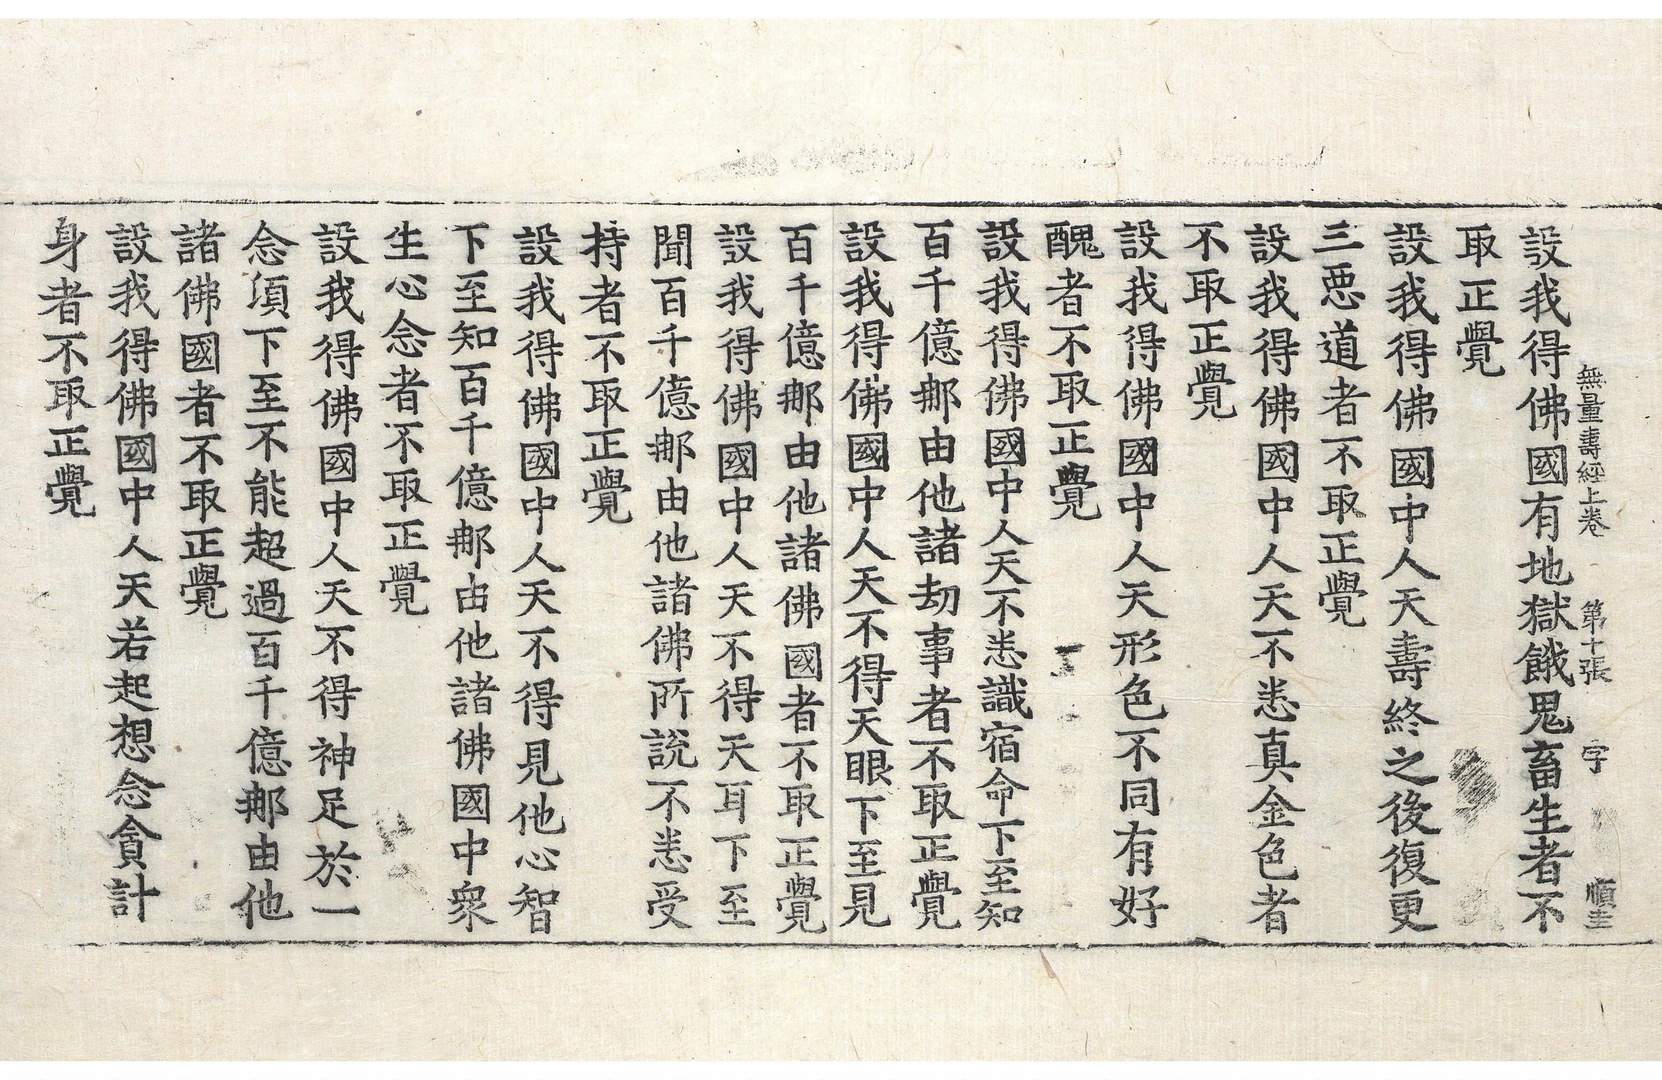 無量壽經上卷　第十張　字　順圭
設我得佛國有地獄餓鬼畜生者不
取正覺
設我得佛國中人天壽終之後復更
三惡道者不取正覺
設我得佛國中人天不悉真金色者
不取正覺
設我得佛國中人天形色不同有好
醜者不取正覺
設我得佛國中人天不悉識宿命下至知
百千億那由他諸劫事者不取正覺
設我得佛國中人天不得天眼下至見
百千億那由他諸佛國者不取正覺
設我得佛國中人天不得天耳下至
聞百千億那由他諸佛所說不悉受
持者不取正覺
設我得佛國中人天不得見他心智
下至知百千億那由他諸佛國中衆
生心念者不取正覺
設我得佛國中人天不得神足於一
念湏下至不能超過百千億那由他
諸佛國者不取正覺
設我得佛國中人天若起想念貪計
身者不取正覺